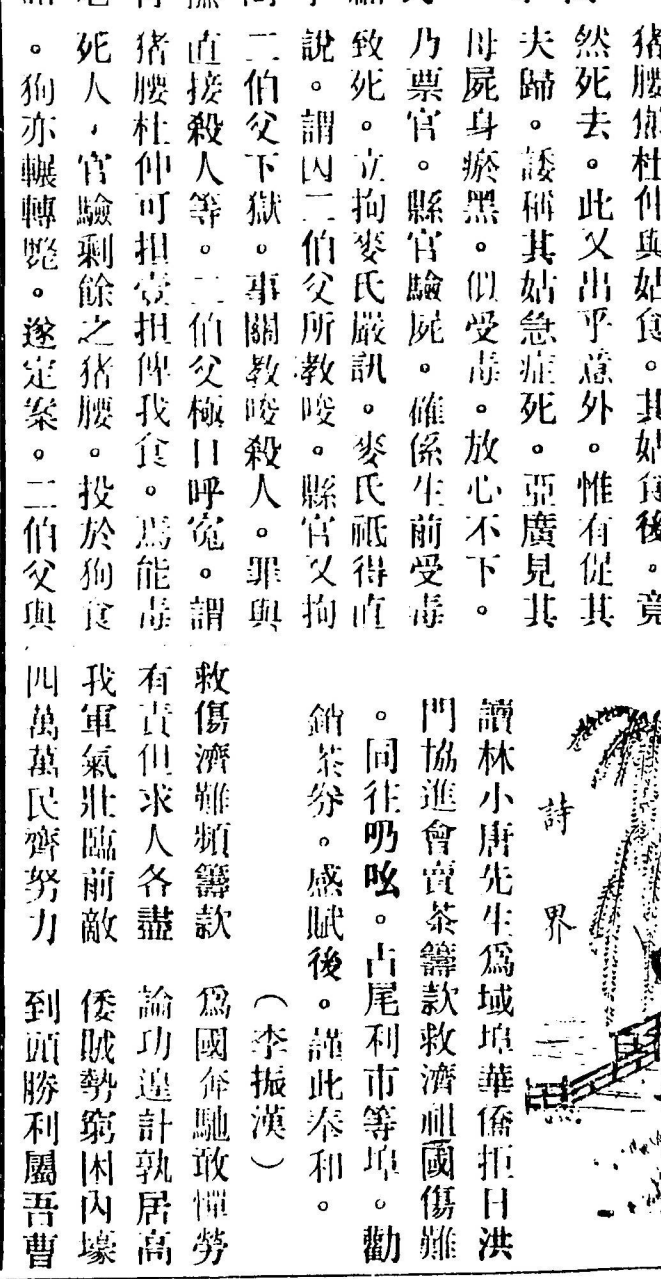 猪腰煎杜仲與姑食。其姑食後。竟
然死去。此又出乎意外。惟有促其
夫歸。諉稱其姑急症死。亞廣見其
母屍身瘀黑。似受毒。放心不下。
乃票官。縣官驗屍。確係生前受毒
致死。立拘麥氏嚴訊。麥氏祇得直
說。謂因二伯父所教唆。縣官又拘
二伯父下獄。事關教唆殺人。罪與
直接殺人等。二伯父極口呼寃。謂
猪腰杜仲可担壹担俾我食。焉能毒
死人，官驗剩餘之猪腰。投於狗食
。狗亦輾轉斃。遂定案。二伯父與
詩界
讀林小唐先生爲域埠華僑拒日洪
門協進會賣茶籌款救濟祖國傷難
。同往叨吆。古尾利市等埠。勸
銷茶券。感賦後。謹此奉和。
（李振漢）
救傷濟難頻籌款 爲國奔馳敢憚勞
有責但求人各盡 論功遑計孰居高
我軍氣壯臨前敵 倭賊勢窮困內壕
四萬萬民齊努力 到頭勝利屬吾曹